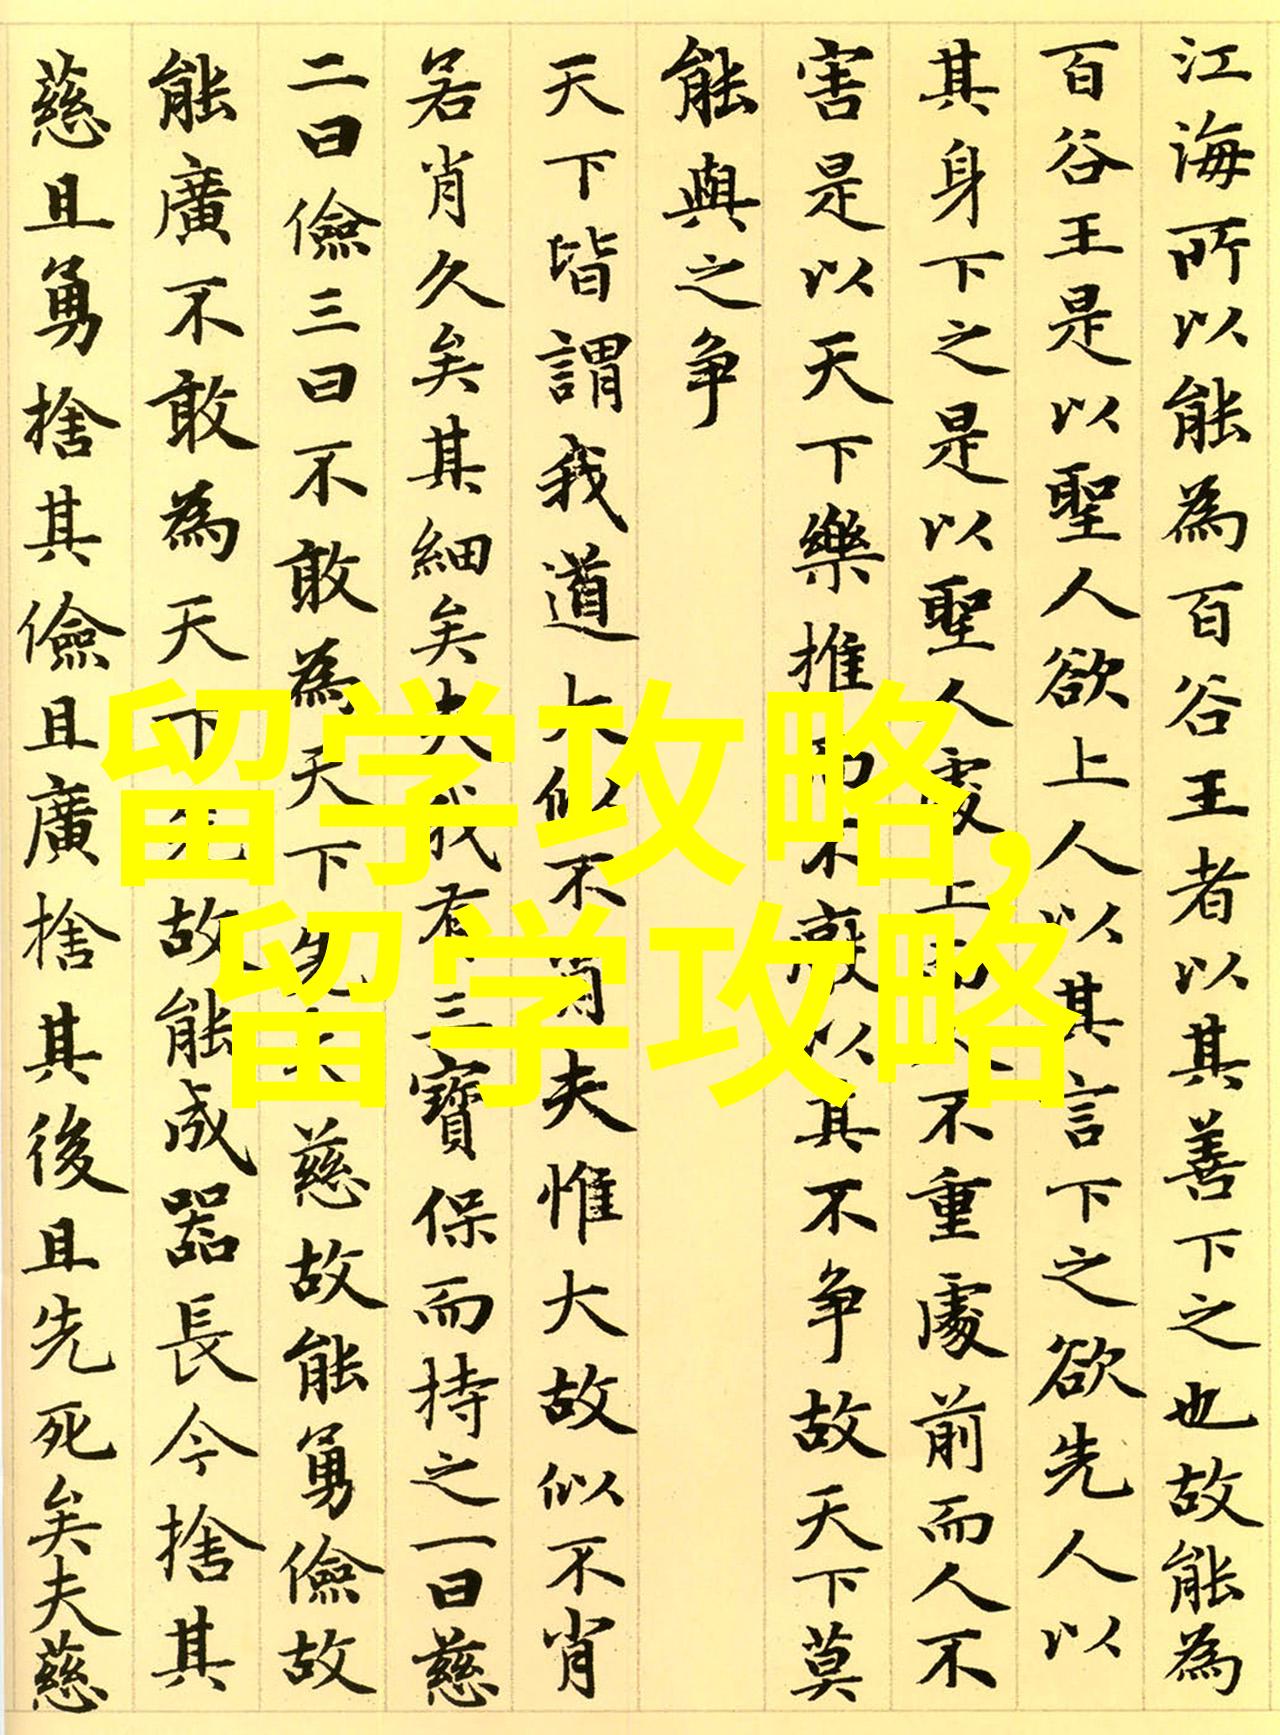 江海所以能為百谷王者以其善下之也故能為
百谷王是以聖人欲上人以其言下之欲先人以
其身下之是以聖人處上而人不重處前而人不
害是以天下樂推而不厭以其不争故天下莫
能與之争
天下皆謂我道大似不肖夫惟大故似不肖
若肖久矣其細矣夫我有三寶保而持之一曰慈
二曰儉三曰不敢為天下先夫慈故能勇儉故
能廣不敢為天下先故能成器長今捨其
慈且勇捨其儉且廣捨其後且先死矣夫慈
留学攻略,
留学攻略